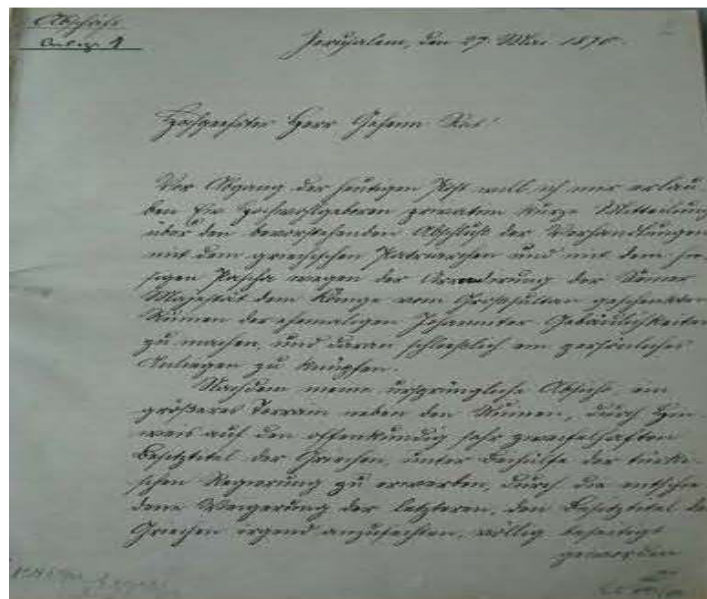 Abschrift
Anlage 1
Jerusalem, den 27. Mai 1870.
Hochgeehrter Herr Geheim-Rat!
Vor Abgang der heutigen Post will ich mir erlau-
ben Ew Hochwohlgeboren privatim kurze Mitteilung
über den bevorstehenden Abschluß der Verhandlungen
mit dem griechischen Patriarchen und mit dem hie-
sigen Pascha wegen der der Seiner
Majestät dem Könige vom Großsultan geschenkten
Ruinen der ehemaligen Johanniter-Gebäulichkeiten
zu machen, und daran schließlich ein persönliches
Anliegen zu knüpfen.
Nachdem meine ursprüngliche Absicht, ein
größeres Terrain neben den Ruinen, durch Hin-
weis auf den offenkundig sehr zweifelhaften
Besitztitel der Griechen, unter Beihülfe der türki-
schen Regierung zu erwerben, durch die entschie-
dene Weigerung der letzteren, den Besitztitel der
Griechen irgend anzufechten, völlig beseitigt
geworden